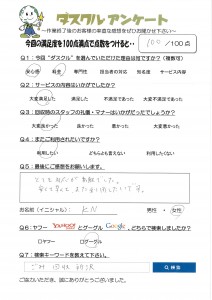 ダスクルアンケート
～作業終了後のお客様の率直な感想をぜひお聞かせ下さい～
今回の満足度を100点満点で点数をつけると・・ 100 /100点
Q1：今回"ダスクル"を選んでいただけた理由は何ですか？（複数可）
安心感 料金 専門性 担当者の対応 知名度 サービス内容
Q2：サービスの内容はいかがでしたか？
大変満足した 満足した 不満足であった 大変不満足であった
Q3：回収時のスタッフの礼儀・マナーはいかがだったでしょうか？
大変良かった 良かった 悪かった 大変悪かった
Q4：またご利用されたいですか？
利用したい どちらとも言えない 利用したくない
Q5：最後にご感想をお願いします。
とても 対応が 素敵でした。
お名前（イニシャル）： K N 男性 ・ 女性
Q6：ヤフー YAHOO! とグーグル Google どちらで検索しましたか？
□ヤフー □グーグル
Q7：検索キーワードを教えて下さい。
ごみ 回収 検索
ご協力いただき、誠にありがとうございました。